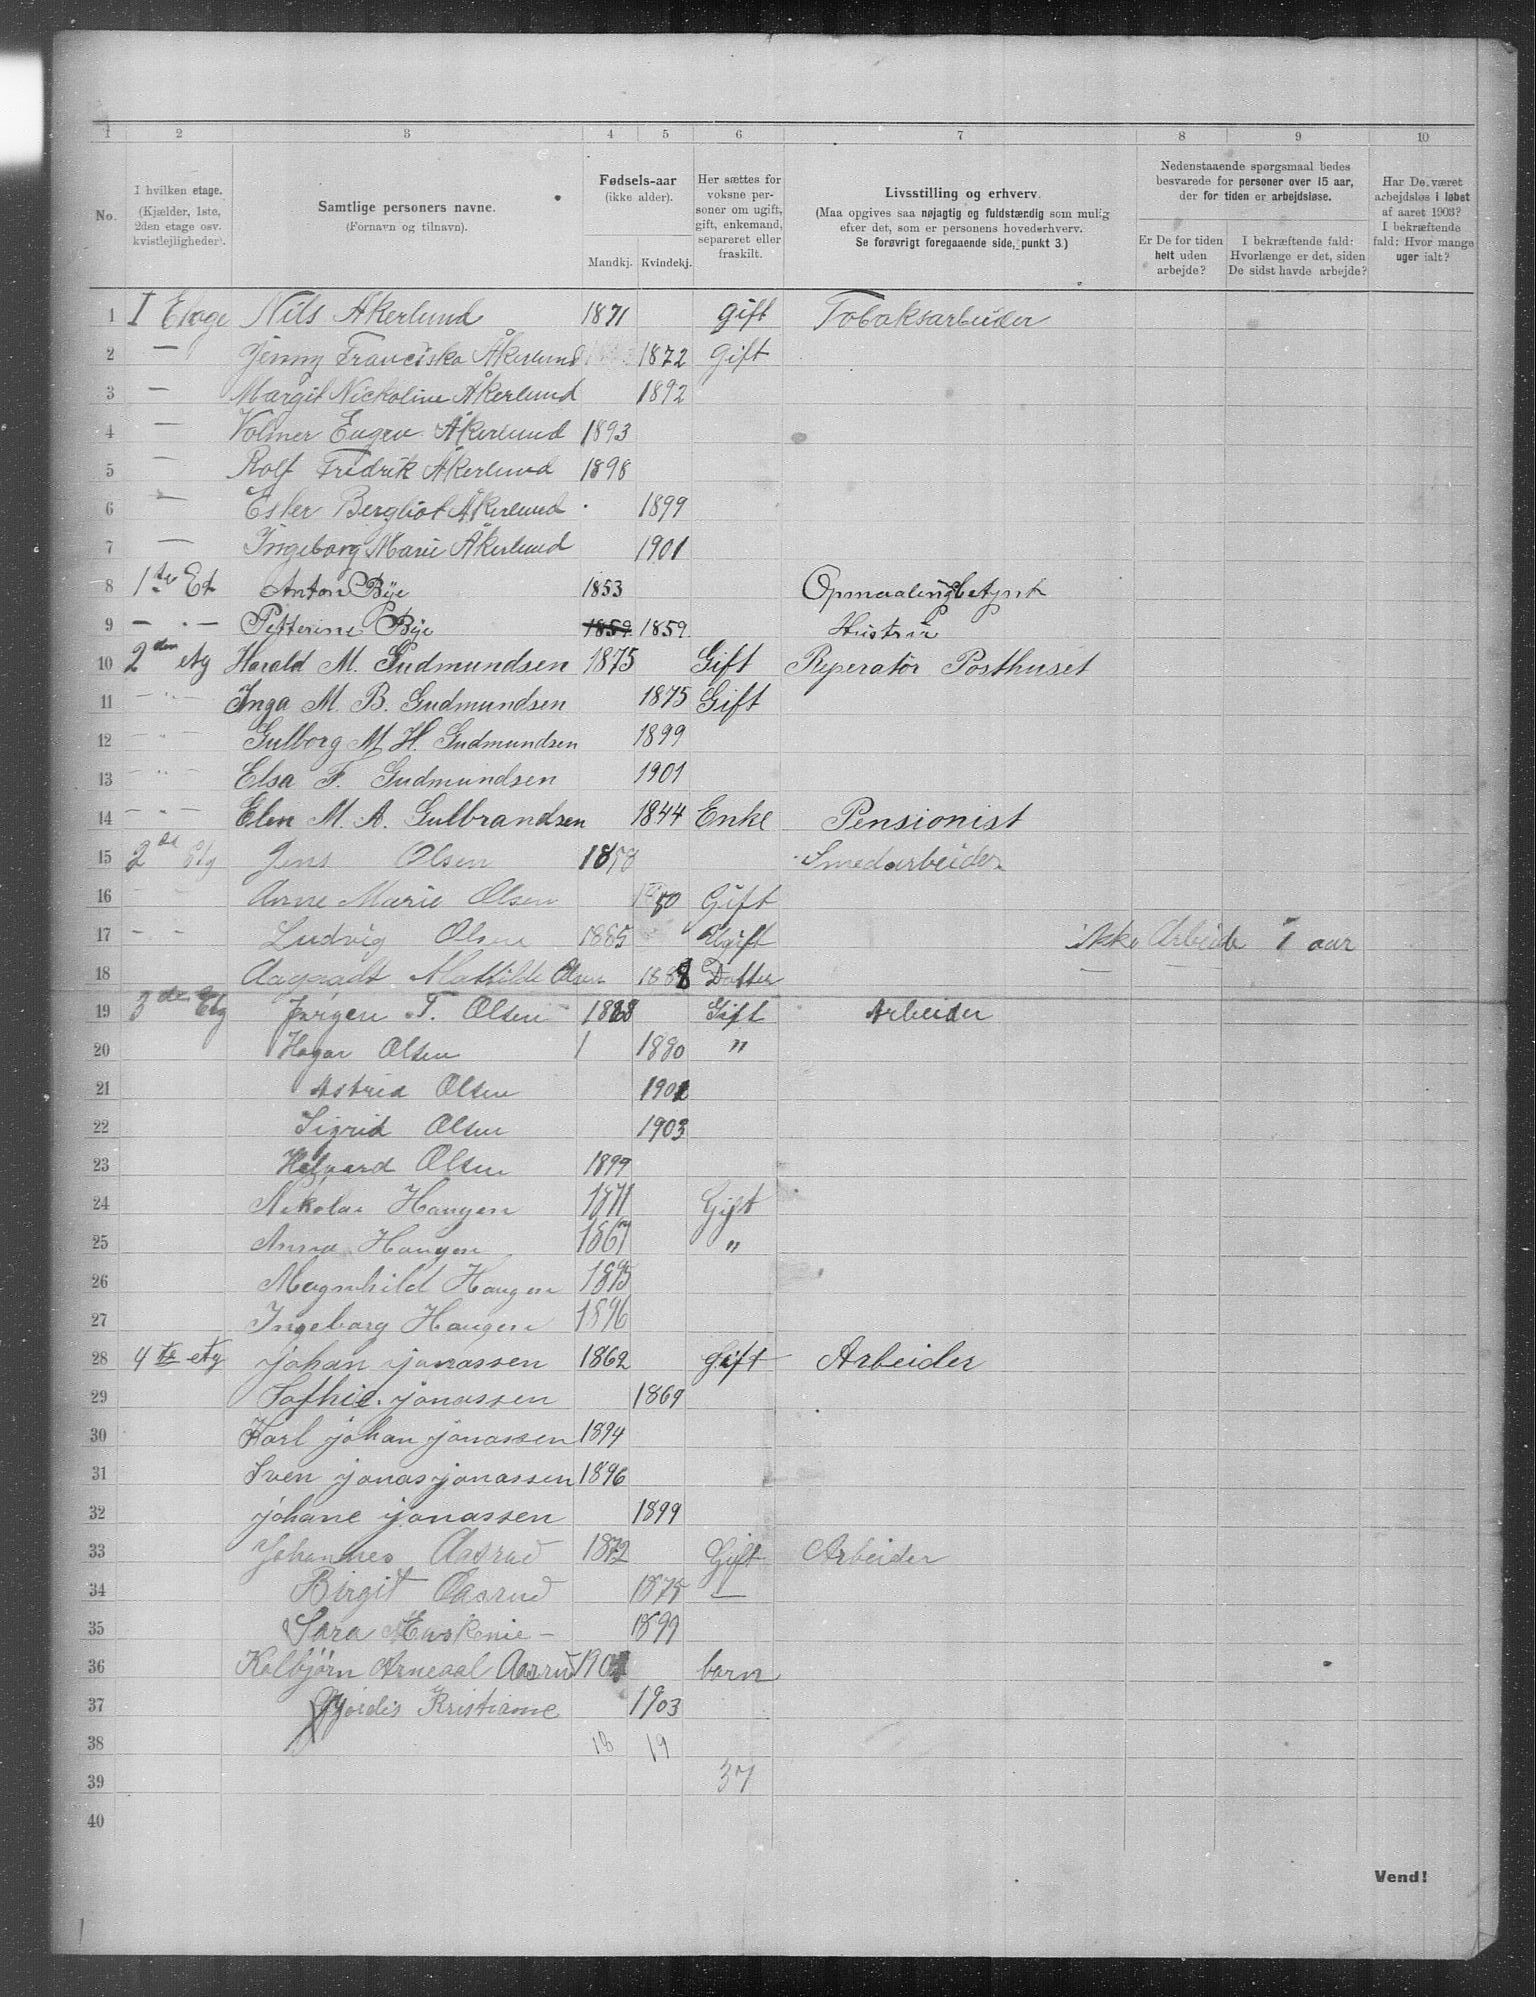 1 2 3 4 5 6 7 8 9 10
No.
I hvilken etage.
(Kjælder, 1ste,
2den etage osv.
kvistlejligheder).
Samtlige personers navne.
(Fornavn og tilnavn).
Fødsels-aar
(ikke alder).
Mandkj. Kvindekj.
Her sættes for
voksne per-
soner om ugift,
gift, enkemand,
separeret eller
fraskilt.
Livsstilling og erhverv.
(Maa opgives saa nøjagtig og fuldstændig som mulig
efter det, som er personens hovederhverv.
Se forøvrigt foregaaende side, punkt 3.)
Nedenstaaende spørgsmaal bedes
besvarede for personer over 15 aar,
der for tiden er arbejdsløse.
Er De for tiden
helt uden
arbejde?
I bekræftende fald:
Hvorlænge er det, siden
De sidst havde arbejde?
Har De været
arbejdsløs i løbet
af aaret 1903?
I bekræftende
fald: Hvor mange
uger ialt?
1 I Etage Nils Åkerlund 1871 gift Tobaksarbeider
2 — Jenny Franciska Åkerlund 1872 Gift
3 — Margit Nickoline Åkerlund 1892
4 — Volmer Eugen Åkerlund 1893
5 — Rolf Fredrik Åkerlund 1898
6 — Ester Bergliot Åkerlund 1899
7 — Ingeborg Marie Åkerlund 1901
8 1ste Et Anton Bye 1853
9 — " — Petterine Bye 1859 1859 Hustru
10 2den etg Harald M. Gudmundsen 1875 Gift Reperatör Posthuset
11 — " — Inga M. B. Gudmundsen 1875 Gift
12 — " — Gulborg M. H. Gudmundsen 1899
13 — " — Elsa F. Gudmundsen 1901
14 — " — Elen M. A. Gulbrandsen 1844 Enke Pensionist
15 2de Etg Jens Olsen 1858 Smedarbeider
16 Anne Marie Olsen Gift
17 — " — Ludvig Olsen 1885 Ugift ikke Arbeide i aar
18 Mathilde Olsen 1888 Datter
19 3de Etg Jørgen T. Olsen Gift Arbeider
20 Hagar Olsen 1880 "
21 Astrid Olsen 1901
22 Sigrid Olsen 1903
23 Halvard Olsen 1899
24 Nikolai Haugen 1871 Gift
25 Anna Haugen 1867 "
26 Magnhild Haugen 1895
27 Ingeborg Haugen 1896
28 4te etg Johan Jonassen 1862 gift Arbeider
29 Sofhie Jonassen 1869
30 Karl Johan Jonassen 1894
31 Sven Jonas Jonassen 1896
32 Johane Jonassen 1899
33 Johannes Aasrud 1872 Gift Arbeider
34 Birgit Aasrud 1875 —
35 Sara 1899
36 Kolbjørn Aasrud barn
37 Hjørdis Kristiane 1903
38 18 19
39 37
40
Vend!